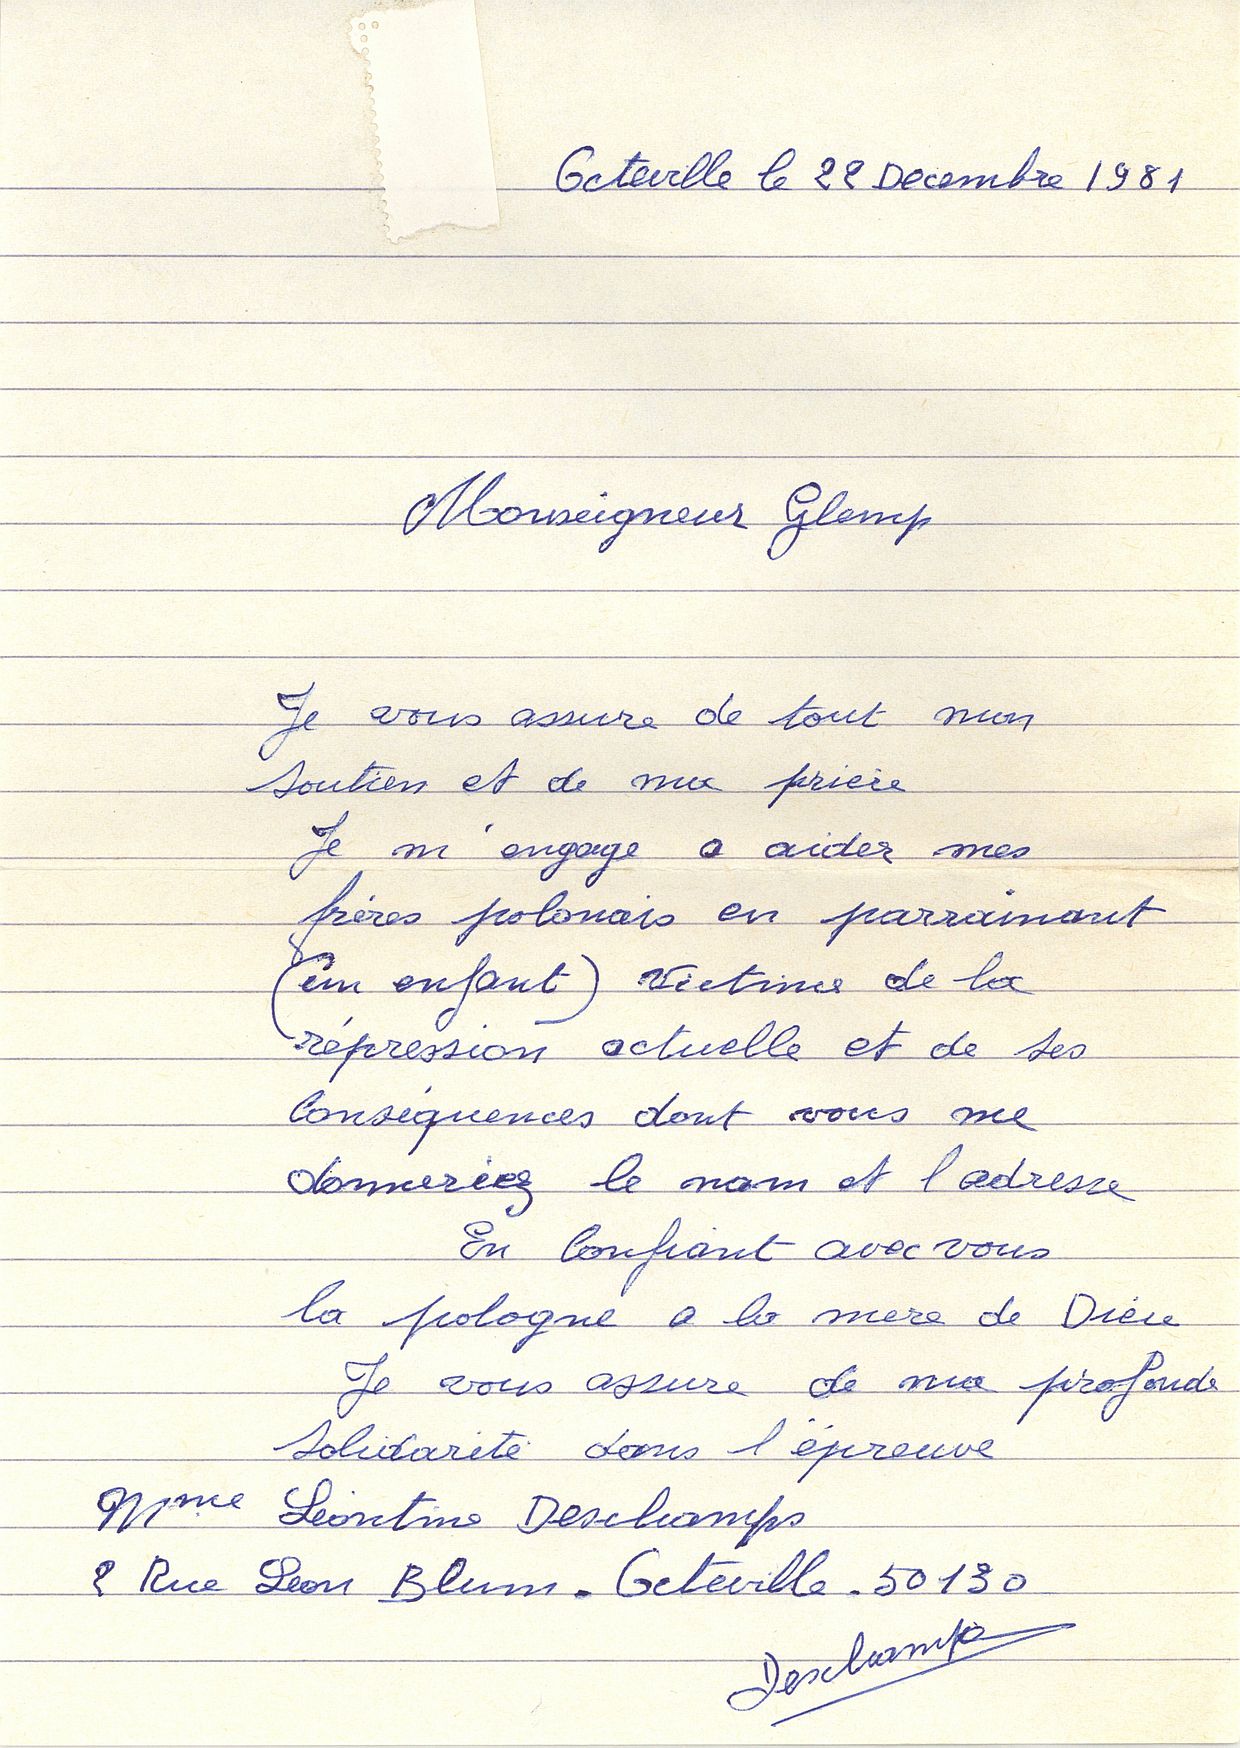 Octeville le 22 Decembre 1981
Monseigneur Glemp
Je vous assure de tout mon
soutien et de ma prière
Je m'engage a aider mes
frères polonais en parrainant
(un enfant) victime de la
répression actuelle et de ses
conséquences dont vous me
donneriez le nom et l'adresse
En confiant avec vous
la pologne a la mere de Dieu
Je vous assure de ma profonde
solidarité dans l'épreuve
Mme Léontine Deschamps
2 Rue Leon Blum. Octeville. 50130
Deschamps